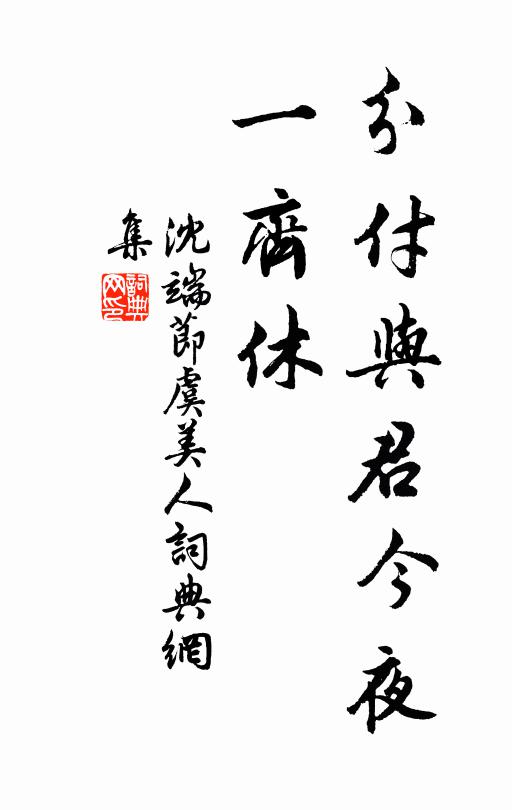 分付與君今夜
一齊休
沈端節虞美人詞典網
集
詞典
网印